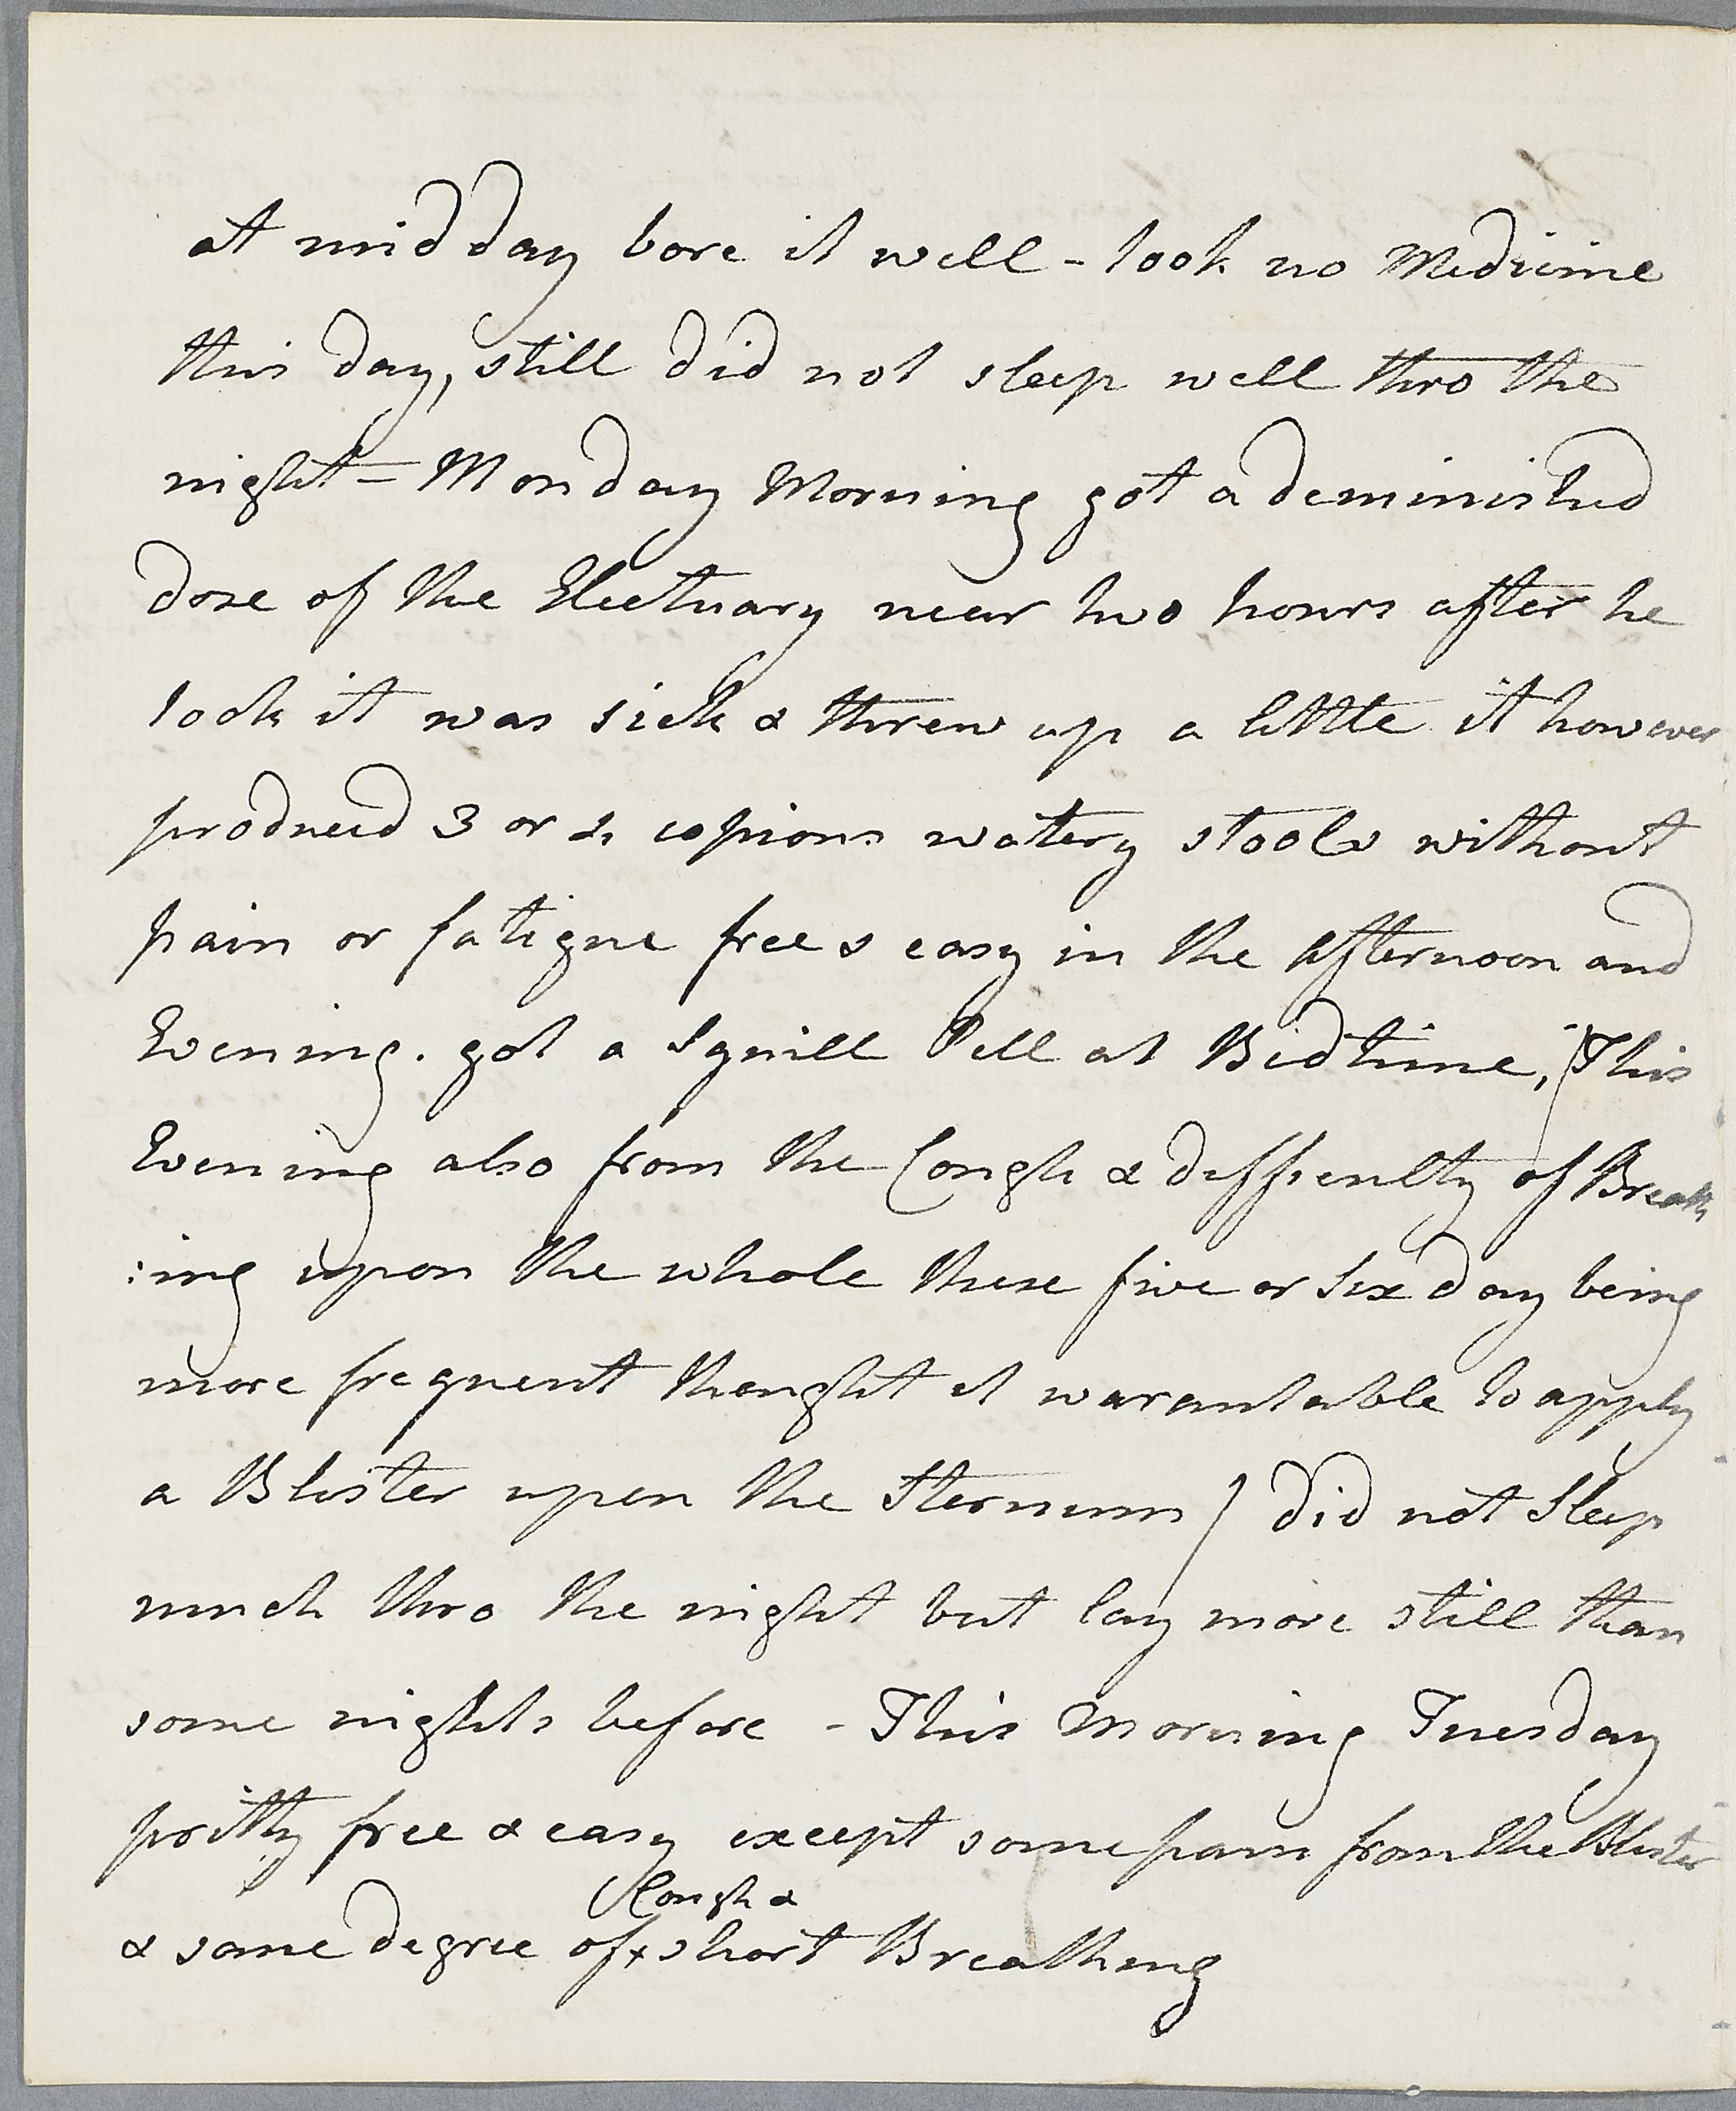 at mid day bore it well - took no Medicine
this day, still did not sleep well thro the
night - Monday Morning got a deminished
dose of the Electuary near two hours after he
took it was sick & threw up a little it however
produced 3 or 4 copious watery stools without
pain or fatigue free & easy in the Afternoon and
Evening. got a Squill Pill at Bedtime, (This
Evening also from the Cough & difficulty of Breath
:ing upon the whole these five or Six day being
more frequent thought it warantable to apply
a Blister upon the Sternum) did not Sleep
much thro the night but lay more still than
some nights before - This Morning Tuesday
pritty free & easy except some pain from the Blister
Cough &
& some degree of x short Breathing